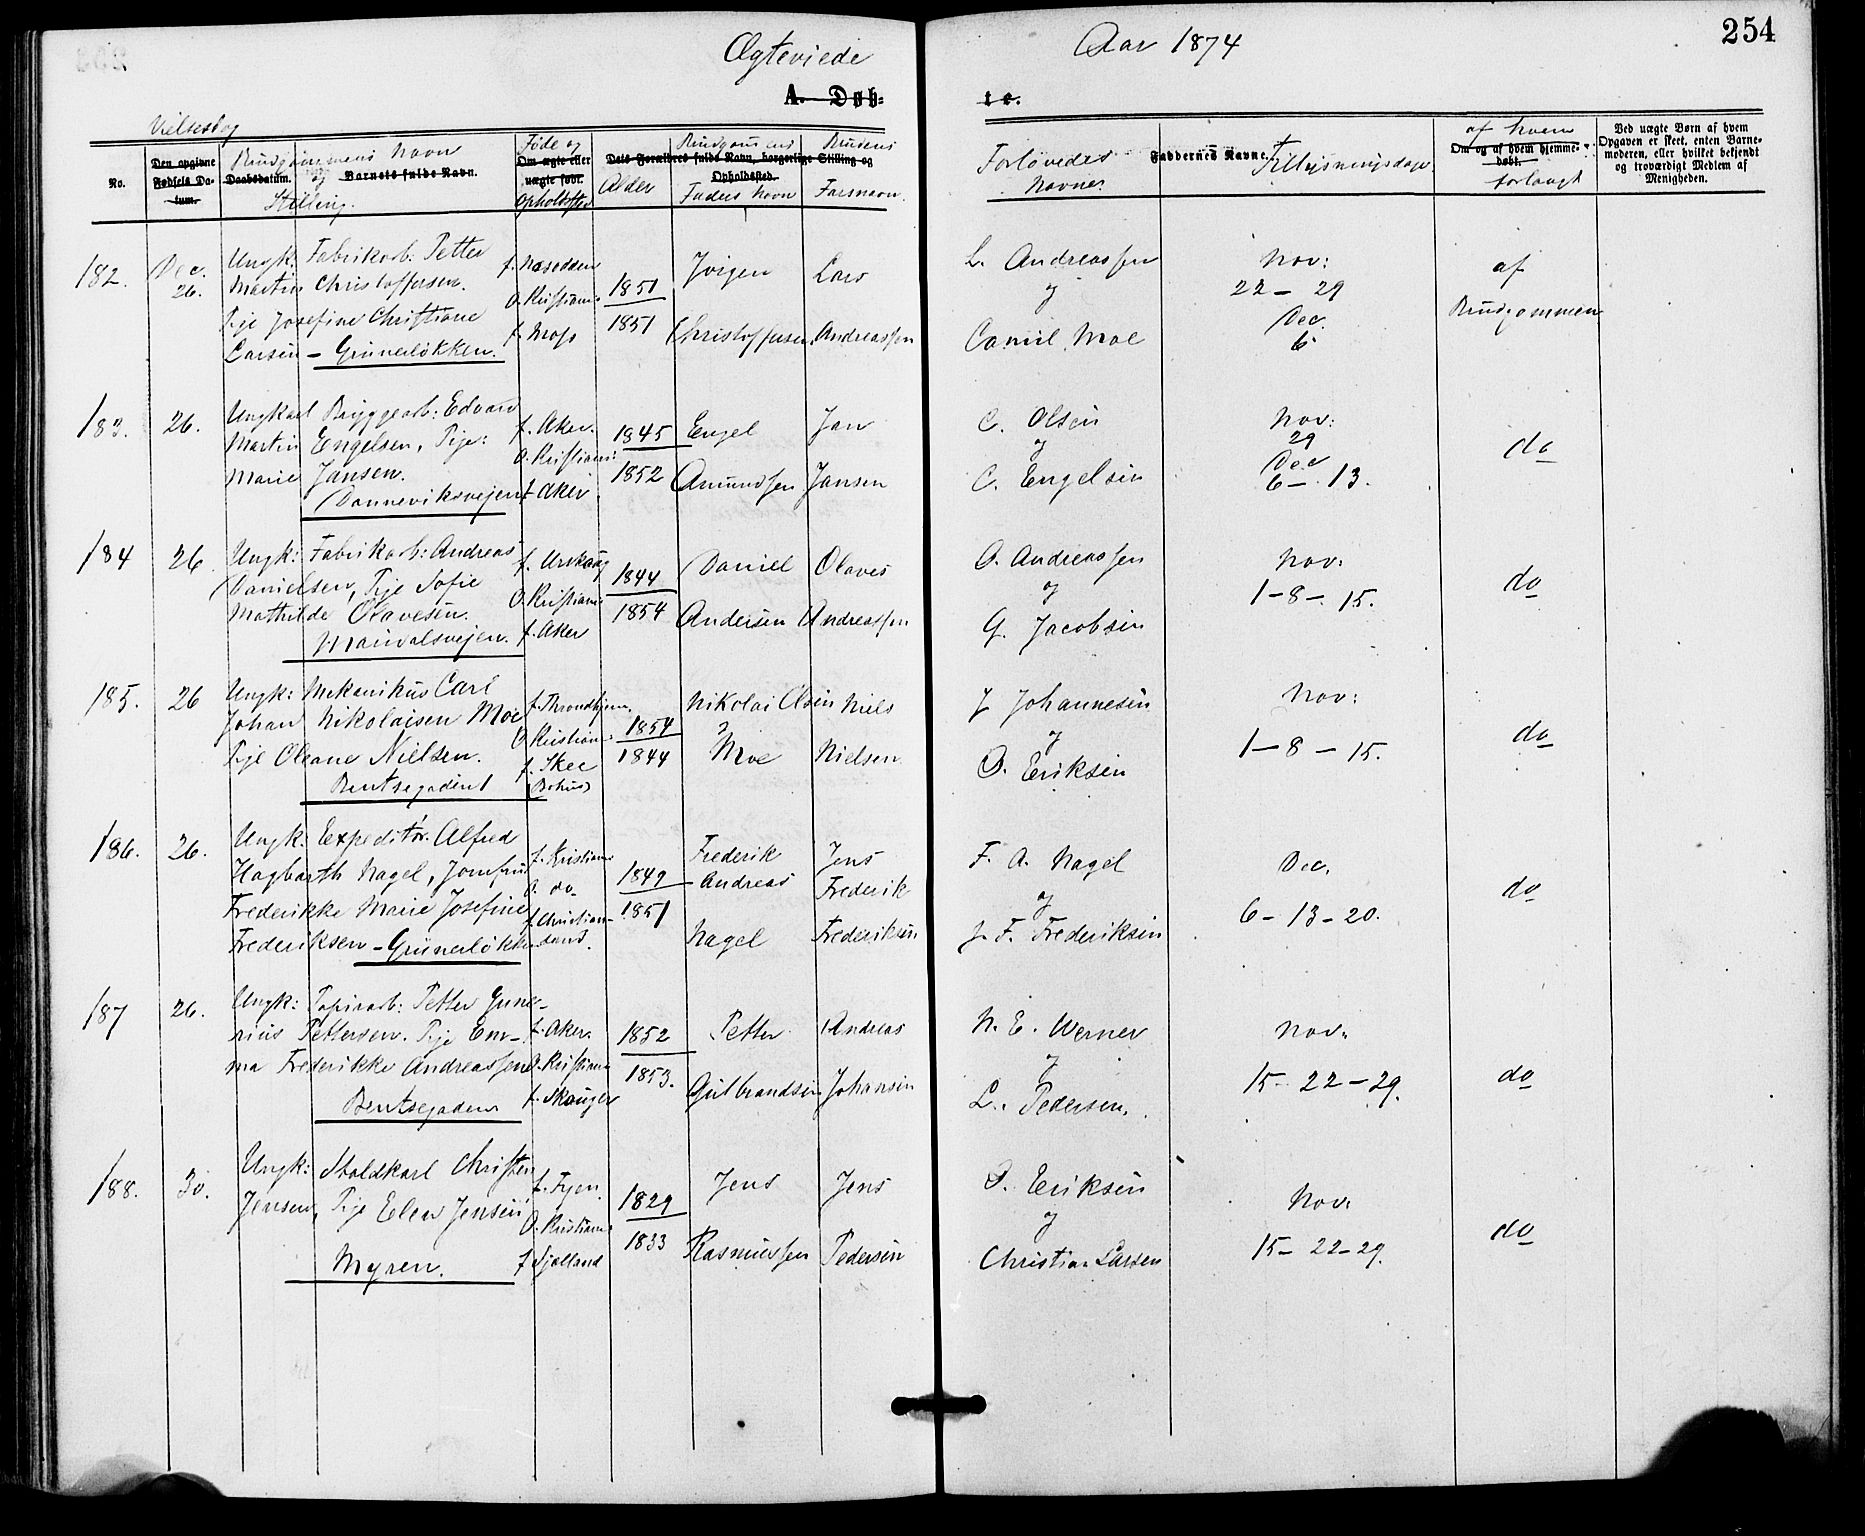 Ægteviede
Aar 1874
254
A. Døb=
te.
Vielsesdag
No.
Den opgivne Fødsels Da-
tum.
Brudgommens Navn
Daabsdatum.
og
Barnets fulde Navn.
Stilling.
Føde og
Om ægte eller
uægte født.
Opholdssted
Dets Forældres fulde Navn, borgerlige Stilling og
Opholdssted.
Alder
Brudgommens
Faders Navn
Brudens
Farsnavn.
Forlovedes
Navne.
Faddernes Navne.
Tillysningsdage.
af hvem
Om og af hvem hjemme-
døbt.
forlangt
Ved uægte Børn af hvem
Opgaven er skeet, enten Barne-
moderen, eller hvilket bekjendt
og troværdigt Medlem af
Menigheden.
182. Dec. 26. Ungk. Fabrikarb: Petter
Martin Christoffersen.
Pije Josefine Christiane
Larsen – Grünerløkken.
f. Næsodden
O. Kristiania
f. Moss
1851
1851
Jørgen
Christoffersen
Lars
Andreassen
L. Andreassen
og
Camil Moe
Nov:
22 – 29
Dec.
6
af
Brudgommen
183. 26. Ungkarl Bryggearb: Edvard
Martin Engelsen, Pije:
Marie Jansen.
Danneviksvejen
f. Aker.
O. Kristiania
f. Aker
1845
1852
Engel
Amundsen
Jan
Jansen
C. Olsen
og
C. Engelsen
Nov:
29
Dec
6 – 13.
do
184 26. Ungk: Fabrikarb: Andreas
Danielsen, Pije Sofie
Mathilde Olavesen.
Maridalsvejen.
f. Urskoug
O. Kristiania
f. Aker
1844
1854
Daniel
Andersen
Olaves
Andreassen
O. Andreassen
og
G. Jacobsen
Nov:
1 – 8 – 15.
do
185. 26 Ungk: Mekanikus Carl
Johan Nikolaisen Moe
Pije Oleane Nielsen.
Bentsegaden 1
f. Throndhjem.
O. Kristiania
f. Skee
(Bohus)
1854
1844
Nikolai Olsen
Moe
Niels
Nielsen
J Johannesen
og
O. Eriksen
Nov:
1 – 8 – 15.
do
186. 26. Ungk. Expeditør. Alfred
Hagbarth Nagel, Jomfru
Frederikke Marie Josefine
Frederiksen – Grünerløkken
f. Kristiania
O. do.
f. Christian-
sand.
1849
1851
Frederik
Andreas
Nagel
Jens
Frederik
Frederiksen
F. A. Nagel
og
J. F. Frederiksen
Dec.
6 – 13 – 20.
do
187 26. Ungk: Papirarb: Petter Gune-
rius Pettersen. Pije Em-
ma Frederikke Andreassen
Bentsegaden
f. Aker.
O. Kristiania
f. Skauger
1852
1853.
Petter
Gulbrandsen
Andreas
Johansen
N. E. Werner
og
L. Pedersen.
Nov.
15 – 22 – 29.
do
188. 30. Ungk: Staldkarl Christen
Jensen, Pije Elen Jensen
Myren.
f. Fyen.
O. Kristiania
f Sjælland
1829
1833
Jens
Rasmussen
Jens
Pedersen
O. Eriksen
og
Christian Larsen
Nov.
15 – 22 – 29.
do